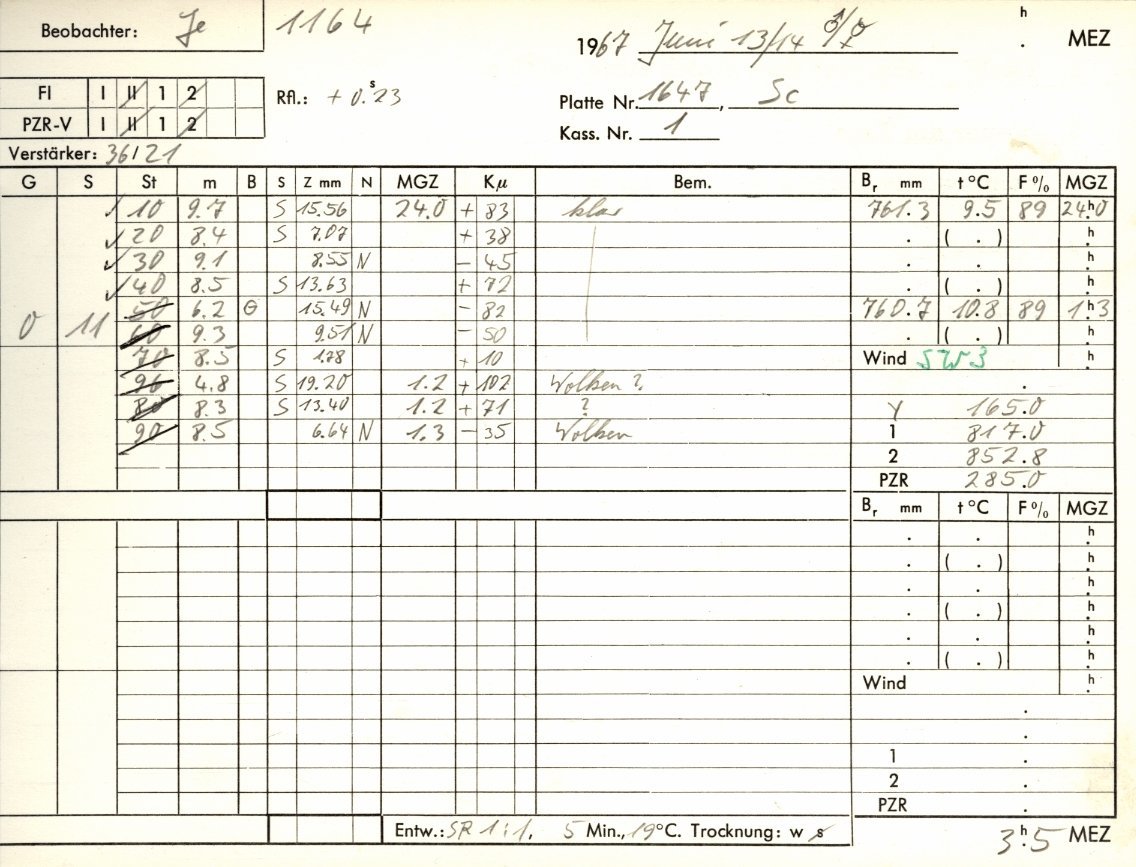 Beobachter: Je 1164
1967 Juni 13/14 ♂/☿ h . MEZ
FI I II 1 2 Rfl.: + 0.s23
PZR-V I II 1 2 Platte Nr. 1647, Sc
Kass. Nr. 1
Verstärker: 36/21
G S St m B S Z mm N MGZ Kµ Bem. Br mm t °C F % MGZ
✓ 10 9.7 S 15.56 24.0 + 83 klar 761.3 9.5 89 24.h0
✓ 20 8.4 S 7.07 + 38 . ( . ) .h
✓ 30 9.1 8.55 N - 45 . . .h
✓ 40 8.5 S 13.63 + 72 . ( . ) .h
0 11 50 6.2 ⊖ 15.49 N - 82 760.7 10.8 89 1.h3
60 9.3 9.51 N - 50 . ( . ) .h
70 8.5 S 1.78 + 10 Wind SW 3 .h
96 4.8 S 19.20 1.2 + 102 Wolken ? .
80 8.3 S 13.40 1.2 + 71 ? γ 165.0
90 8.5 6.64 N 1.3 - 35 Wolken 1 817.0
2 852.8
PZR 285.0
Br mm t °C F % MGZ
. . .h
. ( . ) .h
. . .h
. ( . ) .h
. . .h
. ( . ) .h
Wind .h
.
.
1 .
2 .
PZR .
Entw.: SR 1:1, 5 Min., 19°C. Trocknung: w s 3.h5 MEZ